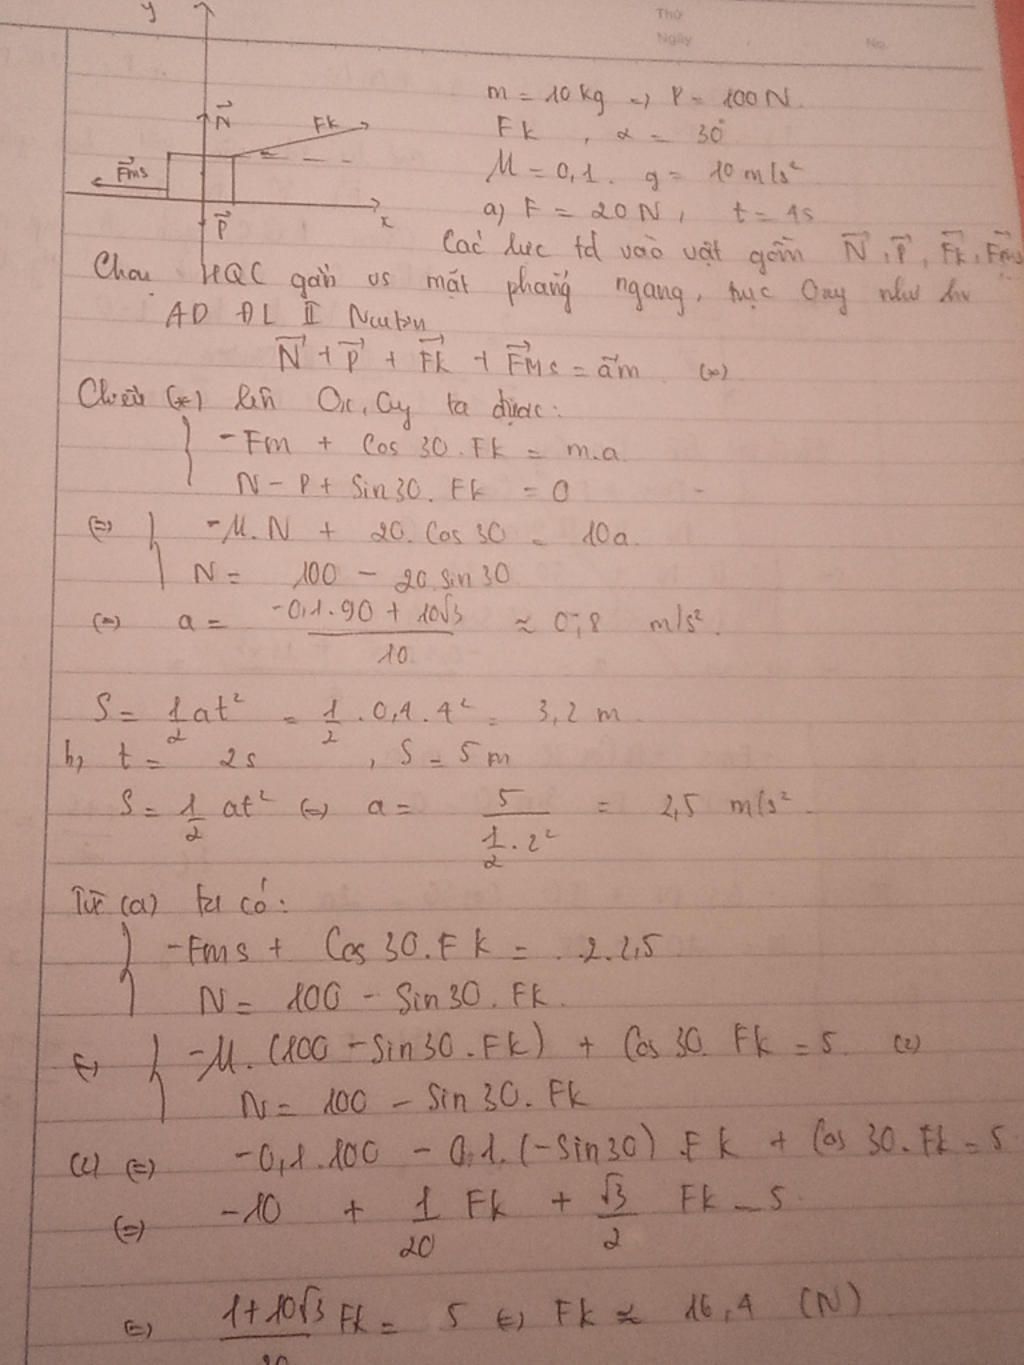 Thứ
Ngày
No.
y
N
Fk
Fms
P
x
m = 10 kg => P = 100 N.
Fk , α = 30°
μ = 0,1. g = 10 m/s²
a) F = 20 N, t = 4s
Các lực td vào vật gồm N, P, Fk, Fms
Chọn HQC gắn vs mặt phẳng ngang, trục Oxy như hv
AD ĐL II Newton
N + P + Fk + Fms = am (*)
Chiếu (*) lên Ox, Oy ta được:
-Fm + Cos 30. Fk = m.a
N - P + Sin 30. Fk = 0
(=) -μ.N + 20. Cos 30 = 10a.
N = 100 - 20 sin 30
(=) a = (-0,1.90 + 10√3)/10 ≈ 0,8 m/s².
S = 1/2 at² = 1/2 . 0,4 . 4² = 3,2 m.
b, t = 2s , S = 5 m
S = 1/2 at² (=) a = 5/(1/2 . 2²) = 2,5 m/s².
Từ (a) ta có:
-Fms + Cos 30. Fk = 2.2,5
N = 100 - Sin 30. Fk.
(=) -μ. (100 - Sin 30. Fk) + Cos 30. Fk = 5. (2)
N = 100 - Sin 30. Fk
(2) (=) -0,1.100 - 0,1.(-Sin 30) . Fk + Cos 30. Fk = 5
(=) -10 + 1/20 Fk + √3/2 Fk = 5.
(=) (1+10√3)/20 Fk = 5 (=) Fk ≈ 16,4 (N)